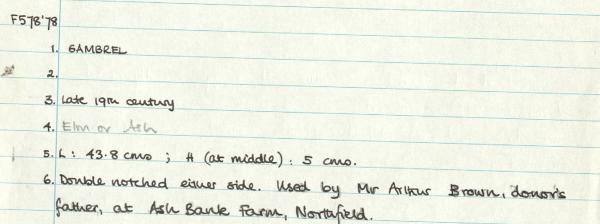 F578'78
1. GAMBREL
2.
3. Late 19th century
4. Elm or Ash
5. L: 43.8 cms ; H (at middle): 5 cms.
6. Double notched either side. Used by Mr Arthur Brown, donor's
father, at Ash Bank Farm, Northfield.